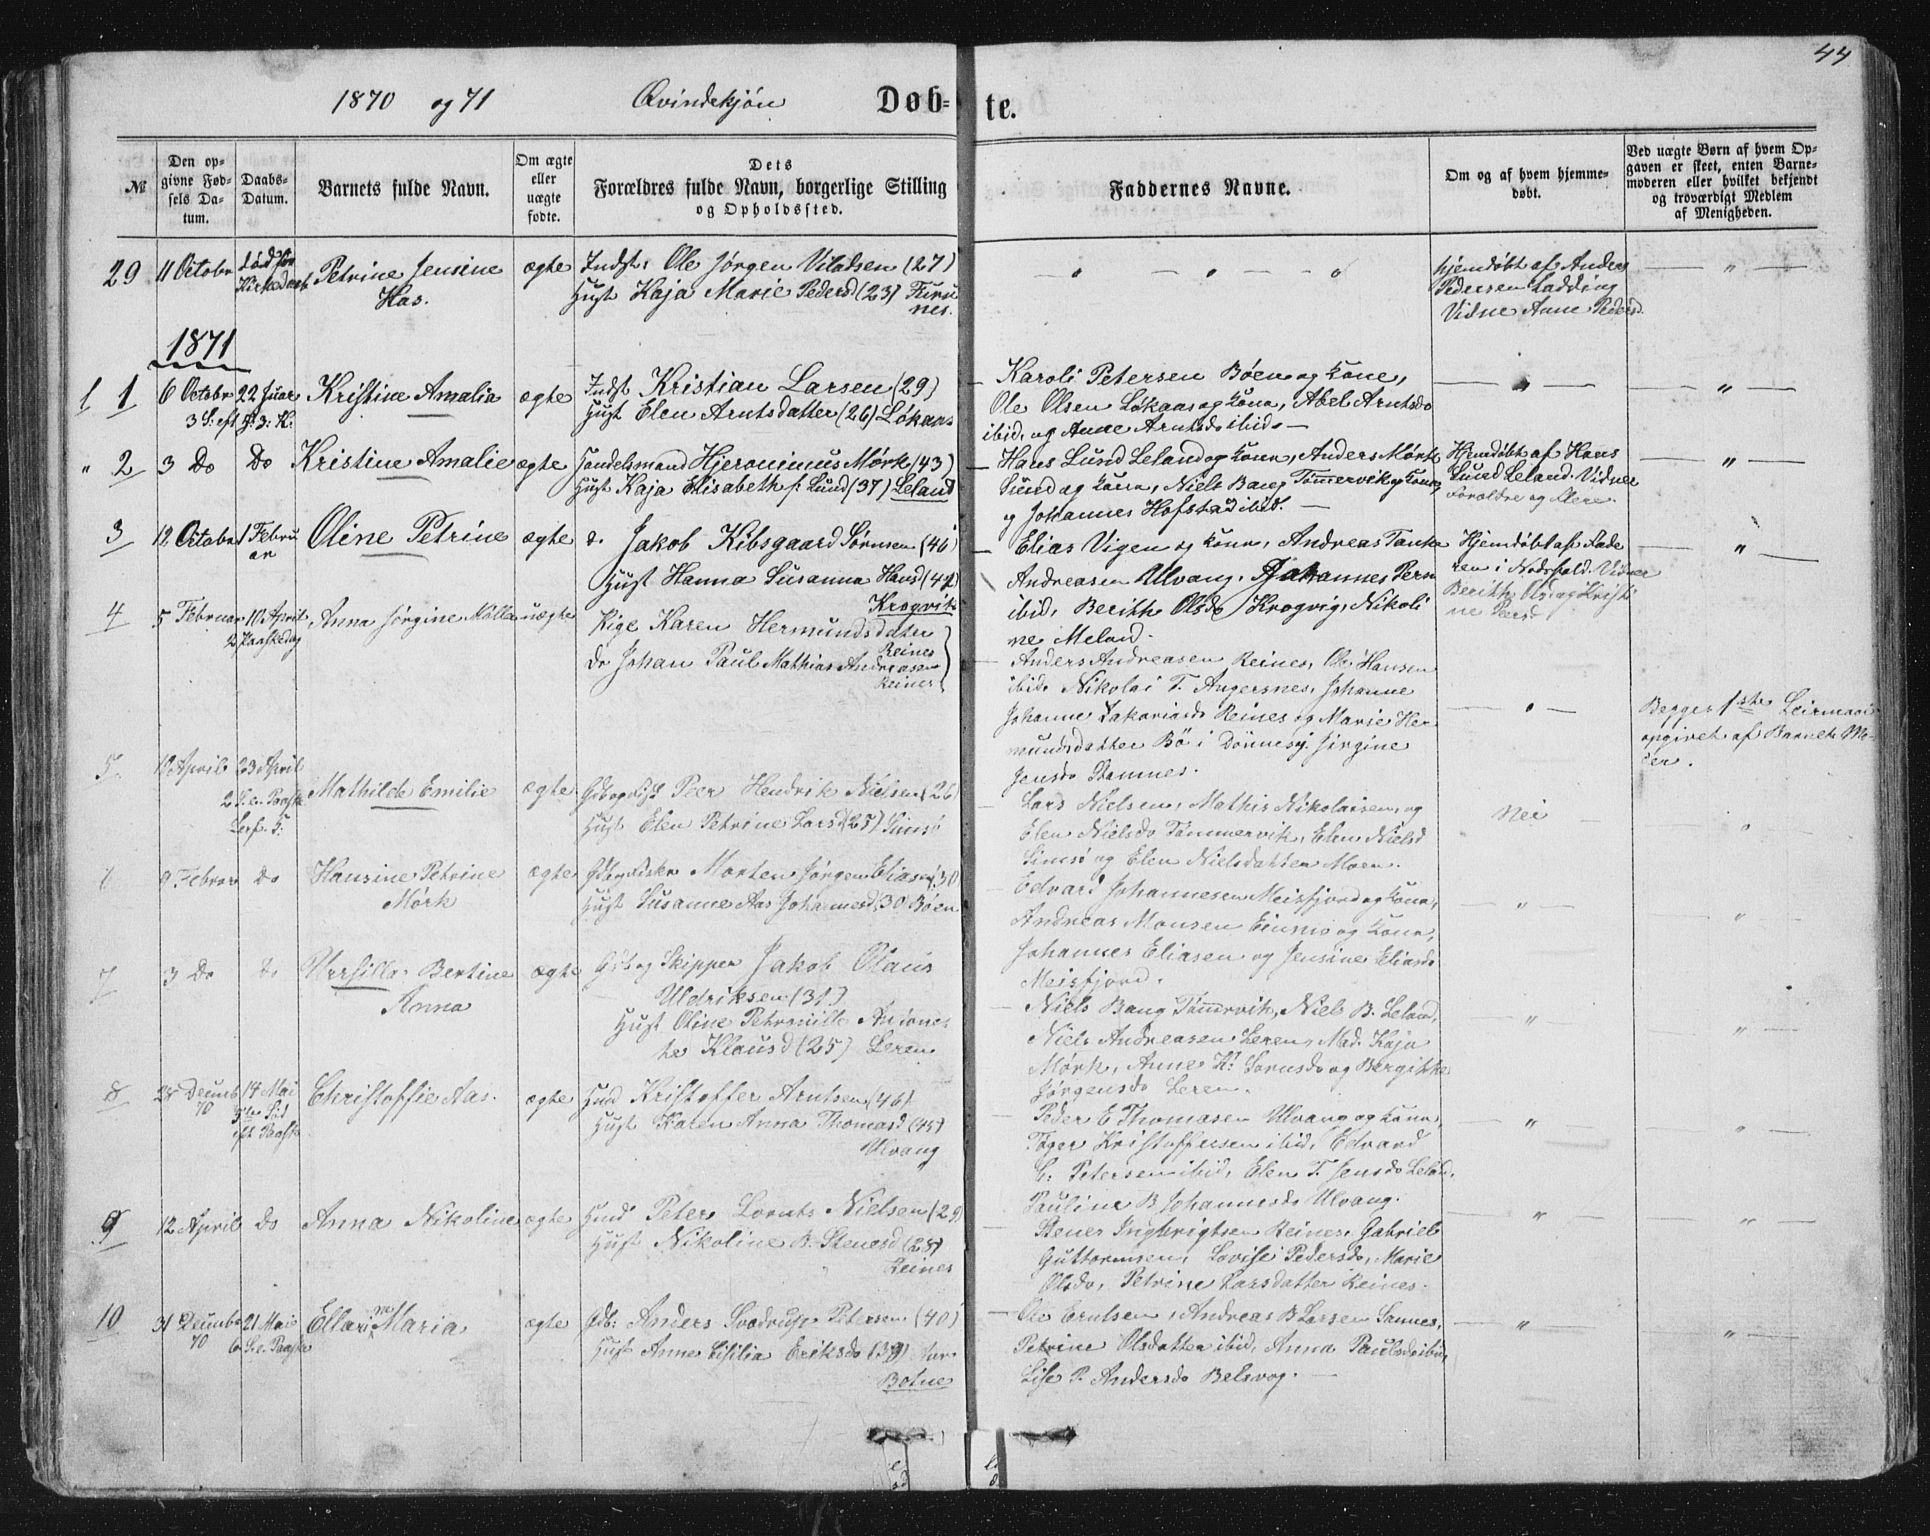 44
1870 og 71 Qvindekjøn Døb- te.
№
Den opgivne Fødsels Datum.
Daabs-Datum.
Barnets fulde Navn.
Om ægte eller uægte fødte.
Dets Forældres fulde Navn, borgerlige Stilling og Opholdssted.
Faddernes Navne.
Om og af hvem hjemmedøbt.
Ved uægte Børn af hvem Opgaven er skeet, enten Barnemoderen eller hvilket bekjendt og troværdigt Medlem af Menigheden.
29 11 Octobr Petrine Jensine ægte Indst: Ole Jørgen Viladsen (27) hjemdøbt af Anders
Has. Hust Kaja Marie Pedersd (23) Pedersen Ladding
nes. Vidne Anne Pedersd
1871
1 1 6 Octobr 22 Januar Kristine Amalia ægte Indst Kristian Larsen (29) Karoli Petersen Bøen og Kone,
3 S. eft H. 3. K. Hust Elen Arntsdatter (26) Løkaas Ole Olsen Løkaas og Kone, Abel Arntsd
ibid, og Anne Arntsd ibid. —
" 2 3 Do Do Kristine Amalie ægte Handelsmand Hjeronimus Mørk (43) Hans Lund Leland og Kone, Anders Mørk Hjemdøbt af Hans
Hust Kaja Elisabeth f: Lund (37) Leland Lund og Kone, Niels Bang Tømmervik og Kone, Lund Leland. Vidner
og Johannes Hofstad ibid. — Forældre og Flere
3 12 Octobr 1 Februar Oline Petrine ægte Jakob Kibsgaard Sørensen (46) Elias Vigen og Kone, Andreas Tanke Hjemdøbt af Faderen i Nødsfald. Vidner
Hust Hanna Susanna Hansd (42) Andreasen Ulvang, Johannes Pers
Krogvik ibid, Berith Olsd Krogvig, Nikoline Meland. Berith Ols og Kristine Peersd
4 5 Februar 10 April Anna Jørgine Molla uægte Pige Karen Hermundsdatter Reines
2 Paaskedag Dr Johan Paul Mathias Andreasen Reines
Anders Andreasen Reines, Ole Hansen
ibid. Nikolai T. Angersnes, Johanne
Johanne Zakariasd Reines og Marie Hermundsdatter Bø i Dønnes, Jørgine
Jensd Stamnes.
Begges 1ste Leiermaal
opgivet af Barnets Moder.
5. 10 April 23 April Mathilde Emilie ægte Peer Hendrik Nielsen (26) Lars Nielsen, Mathis Nikolaisen, og Nei
2 S. e. Paaske Hust Elen Petrine Larsd (25) Elen Nielsd Tømmervik, Elen Nielsd
og Elen Nielsdatter Moen.
9 Februar do Hansine Petrine ægte Morten Jørgen Eliasen (30) Edvard Johannesen Meisfjord og Kone,
Mørk Hust Susanne Aas Johannesd (30) Bøen Andreas Monsen og Kone,
Johannes Eliasen og Jensine Eliasd
Meisfjord.
7 3 Do Do Ursilla Bertine ægte Gdb og Skipper Jakob Olaus Niels Bang Tømmervik, Niels B. Leland,
Anna Uldriksen (31) Niels Andreasen Leren, Mad. Kaja
Hust Oline Petronille Mørk, Anne K: Sørensd og Bergitte
Klausd (25) Leren Jørgensd Leren.
8 28 Decemb 70 14 Mai Christoffie Aas. ægte Husm Kristoffer Arntsen (46) Peder E Thomasen Ulvang og Kone,
Hust Karen Anna Thomasd (45) Kristoffersen ibid, Edvard
Ulvang C. Petersen ibid, Elen T. Jensd Leland,
Pauline B Johannesd Ulvang.
9 12 April do Anna Nikoline ægte Husm Peter Lornts Nielsen (29) Stenes Ingbrigtsen Reines, Gabriel
Hust Nikoline B. Stenesd (28) Guttormsen, Lovise Pedersd, Marie
Reines Olsd, Petrine Larsdatter Reines.
10 31 Decembr 70 21 Mai Ellarine Maria ægte Gdb: Anders Svodrup Petersen (40) Ole Erntsen, Andreas B Larsen Sannes,
6 S. e. Paaske Hust Anne Cisilia Eriksd (39) Petrine Olsdatter ibid, Anna Paulsd ibid,
Botne Lise P. Andersd Belsvog. —